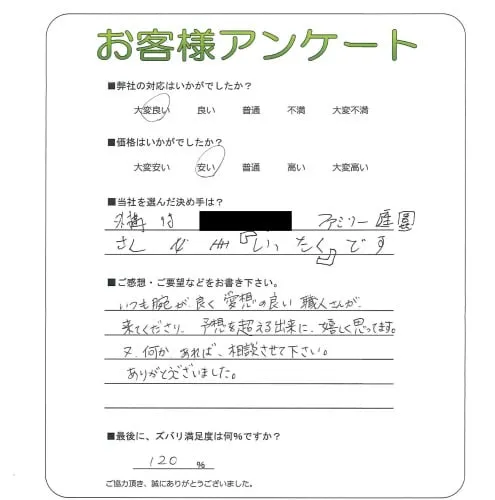 お客様アンケート
■弊社の対応はいかがでしたか？
大変良い 良い 普通 不満 大変不満
■価格はいかがでしたか？
大変安い 安い 普通 高い 大変高い
■当社を選んだ決め手は？
外構は ファミリー庭園
さんが 「いったく」です
■ご感想・ご要望などをお書き下さい。
いつも腕が良く愛想の良い職人さんが
来てくださり、予想を超える出来に、嬉しく思ってます。
又、何かあれば、相談させて下さい。
ありがとうございました。
■最後に、ズバリ満足度は何%ですか？
120 %
ご協力頂き、誠にありがとうございました。